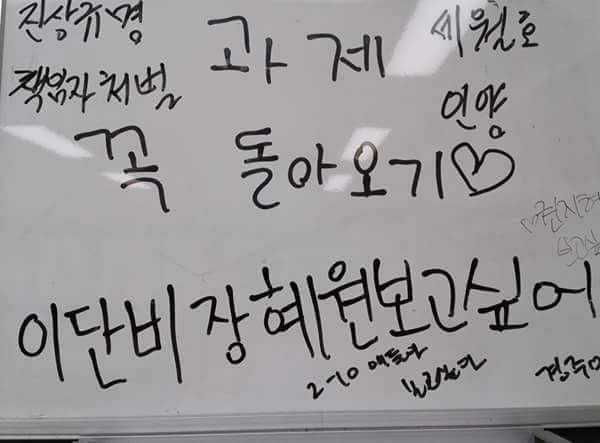 진상규명
과제
세월호
책임자처벌
인양
꼭 돌아오기♡
이단비 장혜원보고싶어
2-10 얘들아
보고싶다